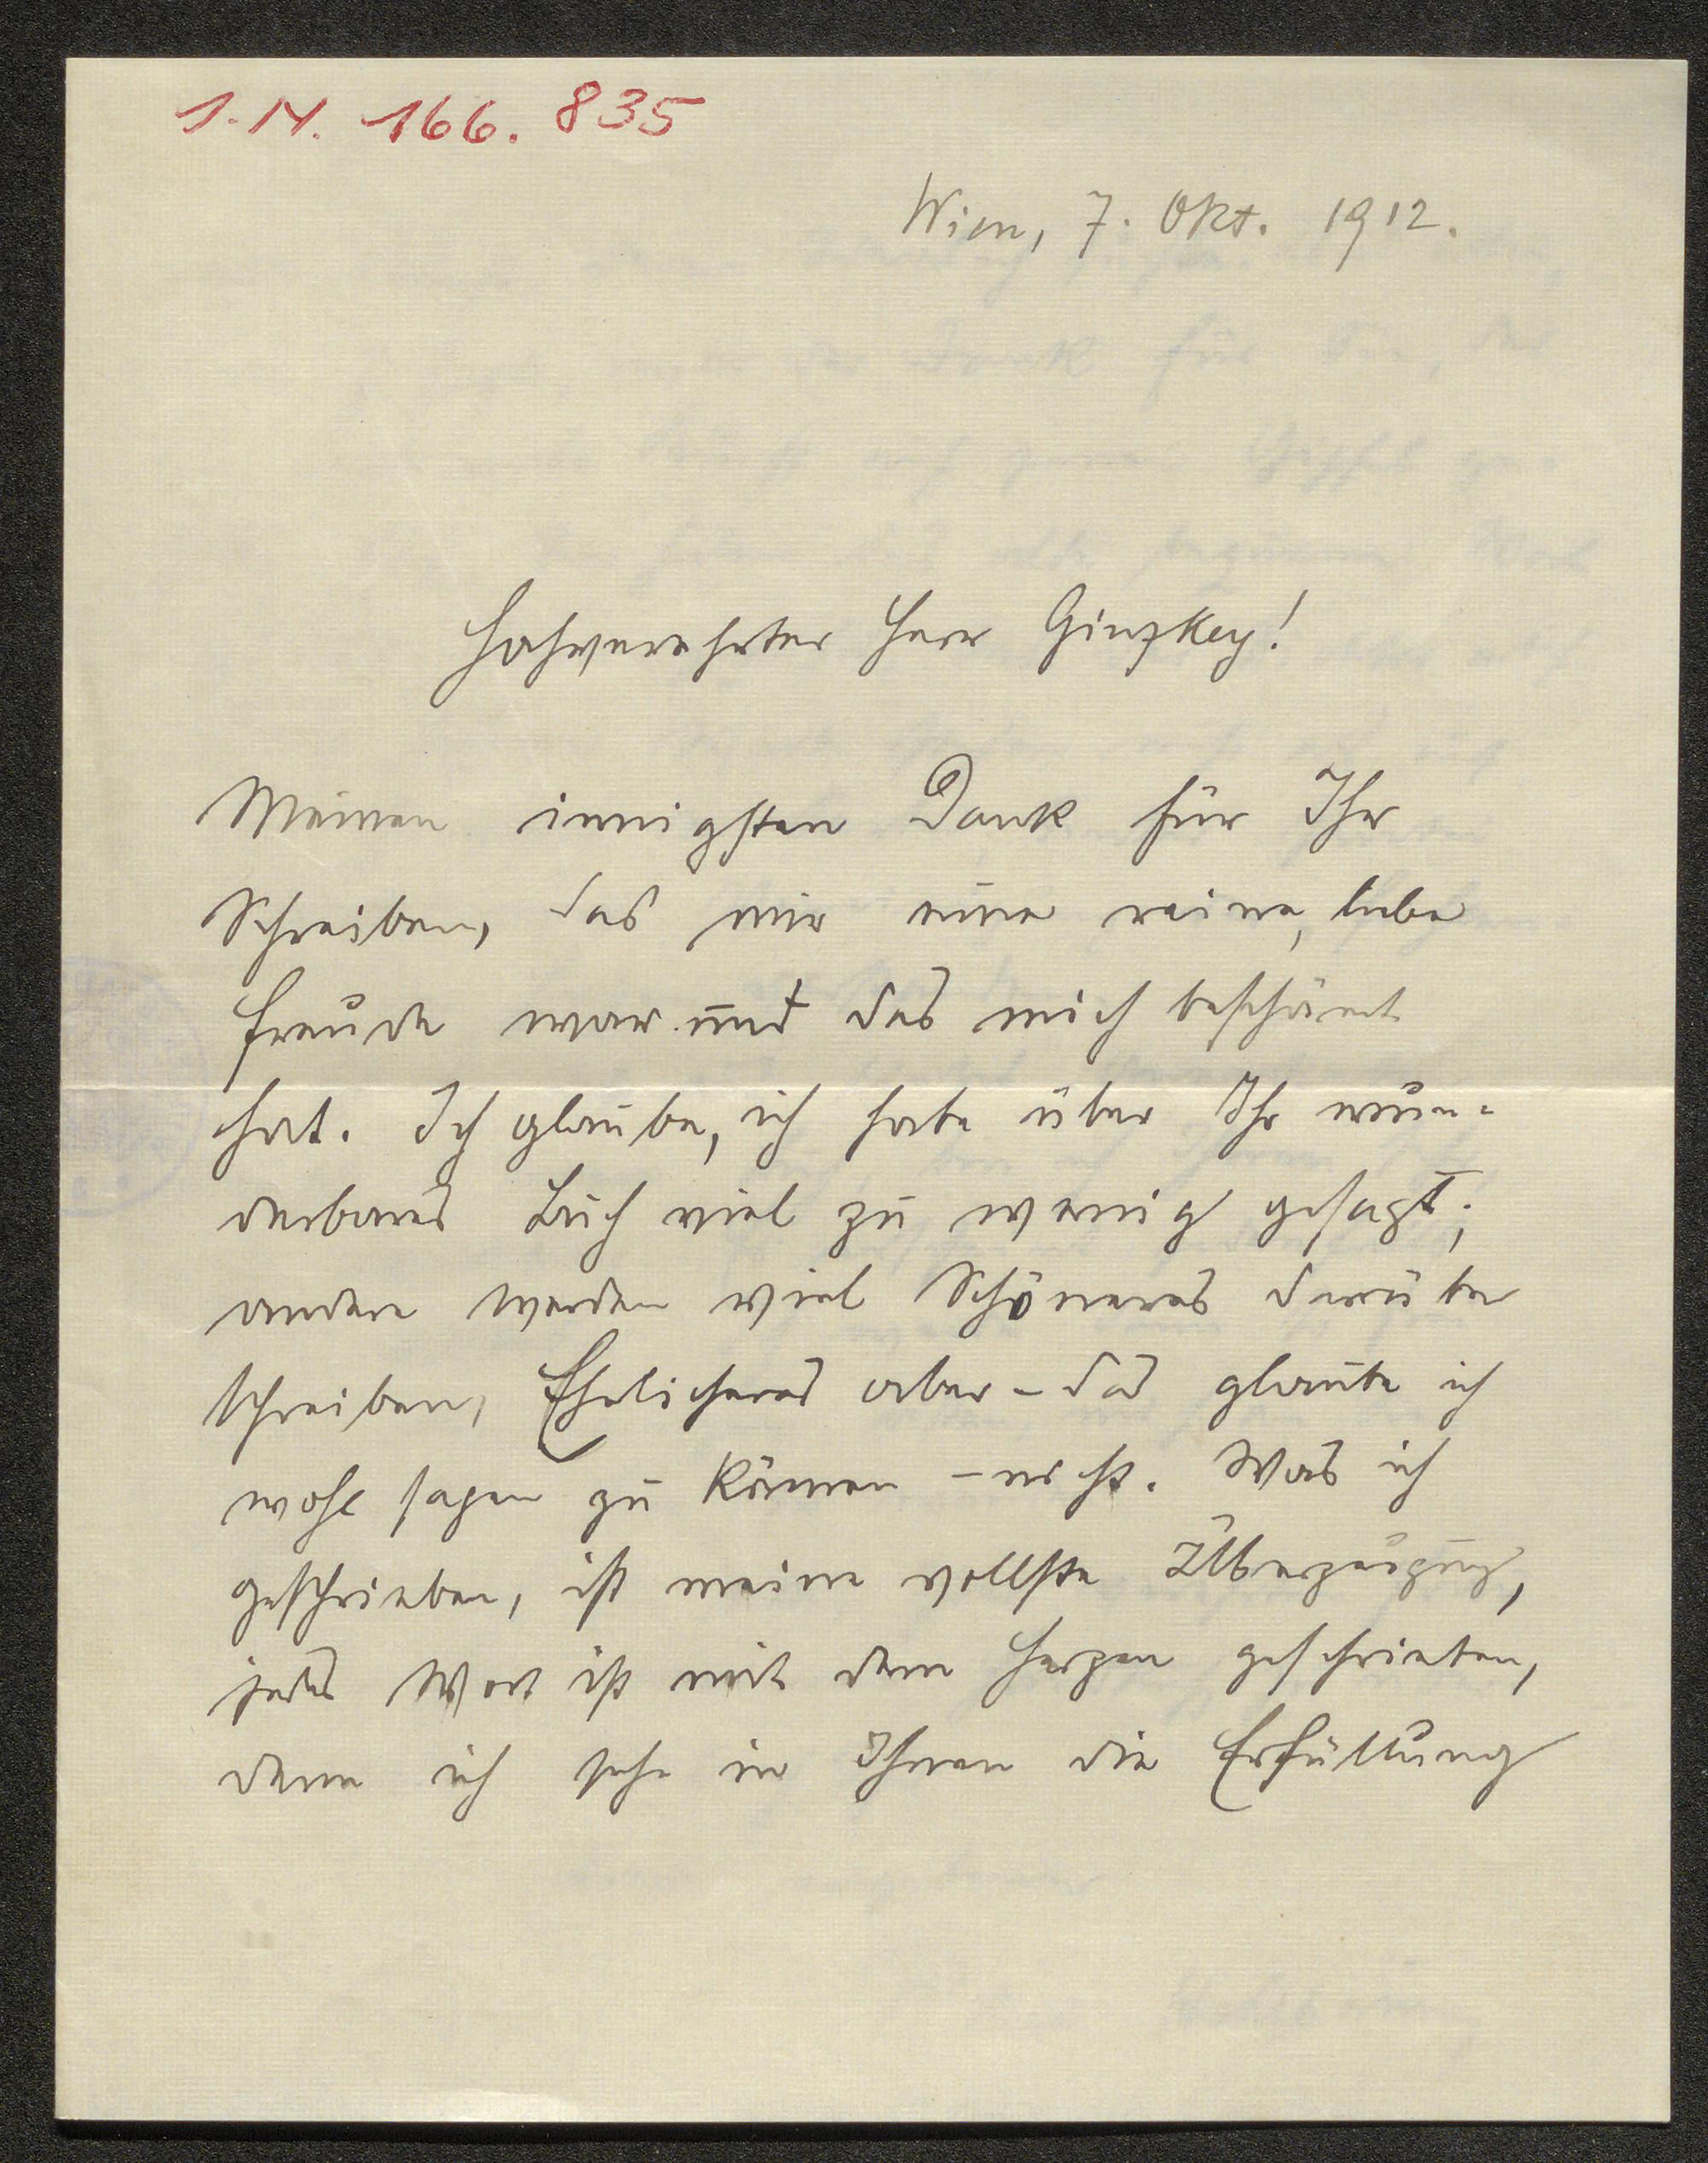 I.N. 166.835
Wien, 7. Okt. 1912.
Hochverehrter Herr Ginzkey!
Meinen innigsten Dank für Ihr
Schreiben, das mir eine reine, liebe
Freude war und das mich beschämt
hat. Ich glaube, ich habe über Ihr wun-
derbares Buch viel zu wenig gesagt;
andere werden viel Schöneres darüber
schreiben, Ehrlicheres aber – das glaube ich
wohl sagen zu können – nicht. Was ich
geschrieben, ist meine vollste Überzeugung,
jedes Wort ist mit dem Herzen geschrieben,
denn ich sehe in Ihnen die Erfüllung